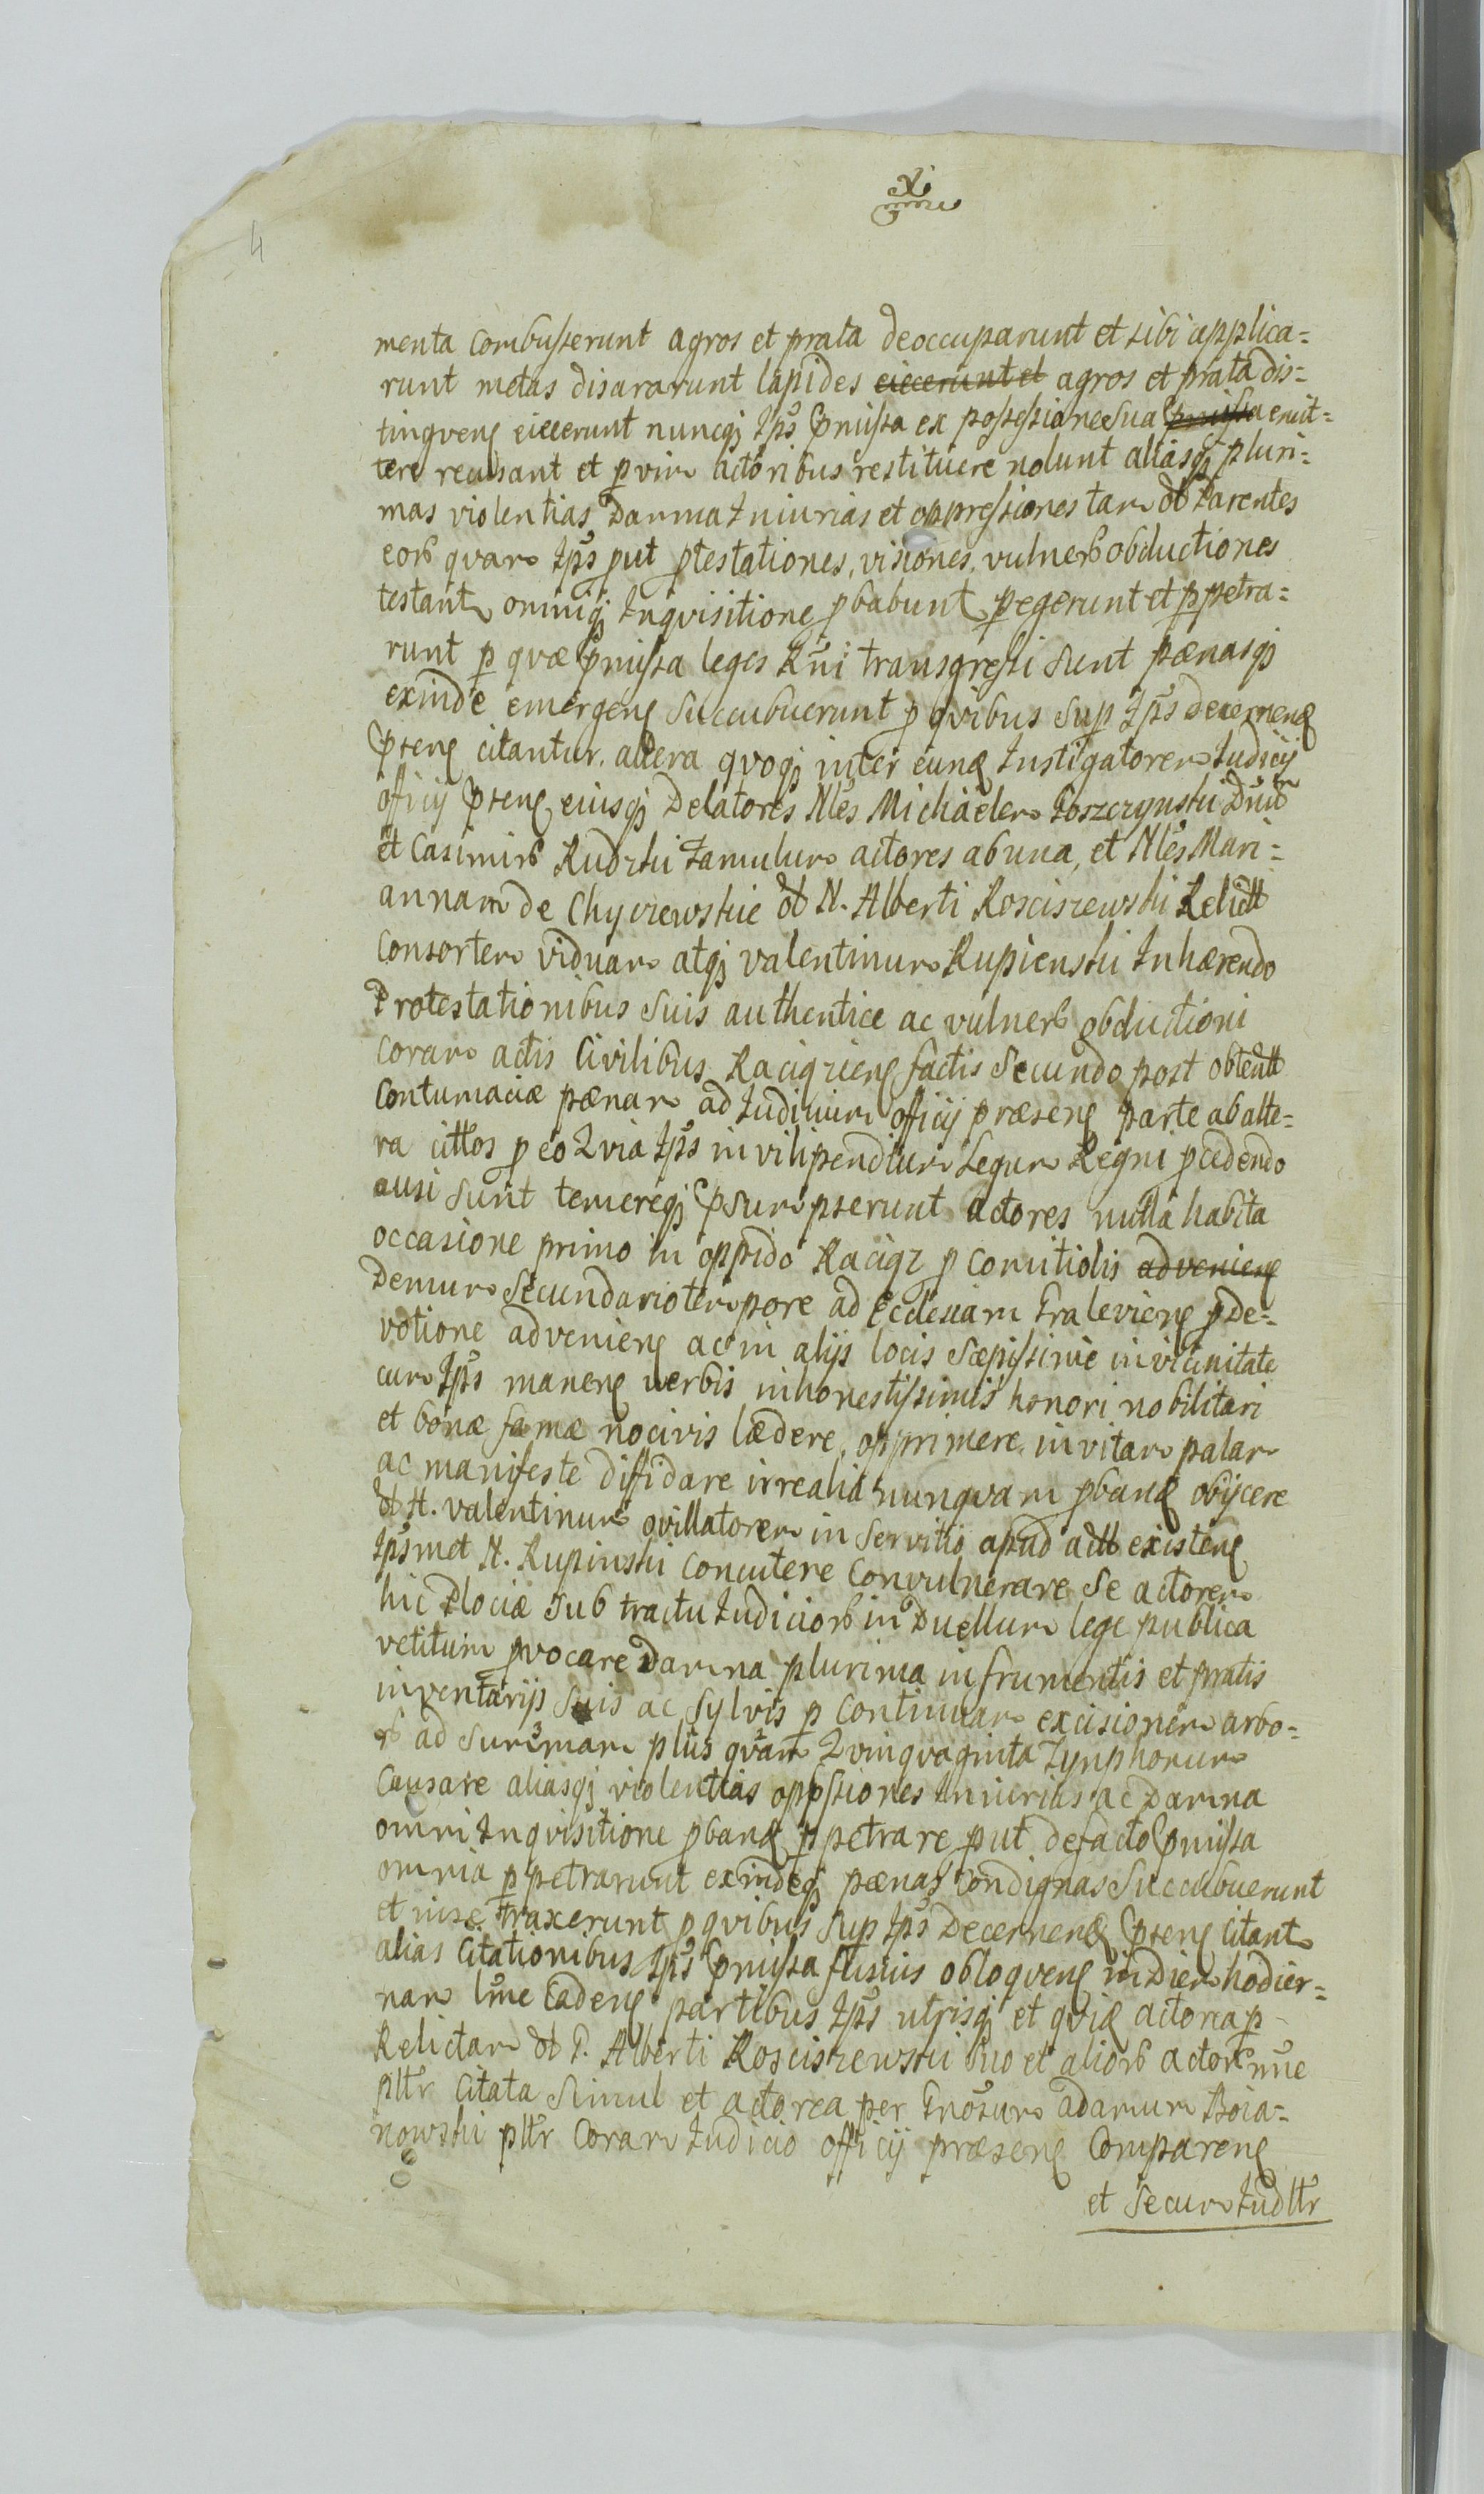 4
menta combusserunt agros et prata deoccuparunt et sibi applica=
runt metas disararunt lapides eiecerunt et agros et prata dis=
tingvens eiecerunt nuncq; Ips pmissa ex possessione sua pmissa emit=
tere recusant et pvim actoribus restituere nolunt aliasq; pluri=
mas violentias Damna Iniurias et oppressiones tam olt Parentes
eorb qvam Ips put ptestationes, visiones, vulnerb obductiones
testantr omniq; Inqvisitione pbabunt pegerunt et ppetra=
runt p qvæ pmissa leges Rni transgressi sunt pænasq;
exinde emergens succubuerunt p qvibus sup Ips Decernend
psens citantur. altera qvoq; inter eund Instigatorem Iudicij
officij psens, eiusq; Delatores Nles Michaelem Koszczynski Dnum
et Casimirb Rudzki Famulum actores ab una, et Nles Mari=
annam de Chyczewskie olt N. Alberti Rosciszewski Relictt
consortem viduam atq; valentinum Rupienski Inhærendo
Protestationibus suis authentice ac vulnerb obductioni
coram actis Civilibus Raciqziens factis Secundo post obtentt
Contumaciæ pænam ad Iudicium officij præsens parte ab alte=
ra cittos p eo Qvia Ips in vilipendium Legum Regni pcedendo
ausi sunt temereq; psumpserunt actores nulla habita
occasione primo in oppido Raciqz p Comitiolis adveniens
Demum Secundario tempore ad Ecclesiam Graleviens p de=
votione adveniens ac in alijs locis sæpissime in vicinitate
cum Ips manens verbis inhonestissimis honori nobilitari
et bonæ famæ nocivis lædere, opprimere, in vitam palam
ac manifeste diffidare irrealia nunqvam pband obijcere
olt H. valentinum ovillatorem in Servitio apud actt existens
Ipsmet N. Rupinski concutere Convulnerare se actorem
hic Plociæ sub tractu Iudiciorb in Duellum lege publica
vetitum pvocare Damna plurima in frumentis et pratis
inventarijs suis ac Sylvis p continuam excisionem arbo=
rb ad summam plus qvam Qvinqvaginta Zynphorum
Causare aliasq; violentias oppssiones Iniurias ac Damna
omni Inqvisitione pband ppetrare put de facto pmissa
omnia ppetrarunt exindeq; pænas condignas Succubuerunt
et in se traxerunt p qvibus Sup Ips Decernend psens citantr
alias Citationibus Ips pmissa fusius obloqvens in Diem hodier=
nam lme Cadens partibus Ips utrisq; et qvid actorea p
Relictam olt P. Alberti Rosciszewski suo et aliorb actorb nne
pltr Citata Simul et actorea per Gnosum adamum Boia=
nowski pltr Coram Iudicio officij præsens Comparens
et Secum Iudltr